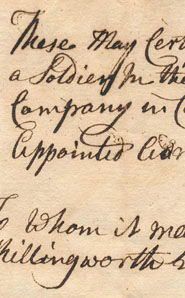 These May Cert
a Soldier In the
Company in C
Appointed
Whom it ma
Killingworth